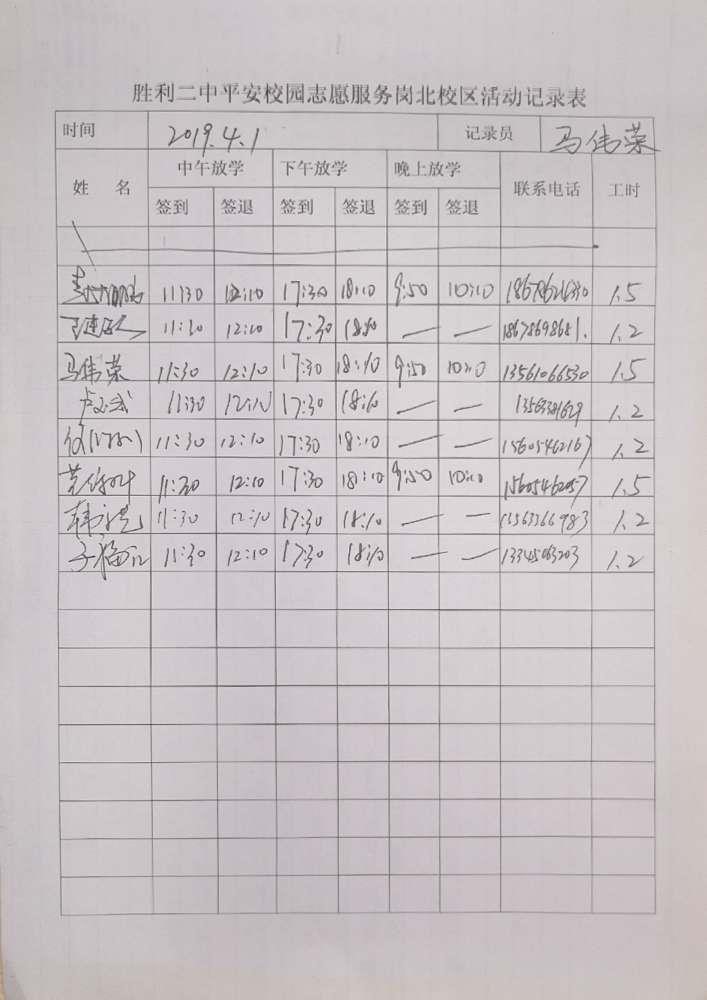 胜利二中平安校园志愿服务岗北校区活动记录表
时间 2019.4.1 记录员 马伟荣
姓 名 中午放学 下午放学 晚上放学 联系电话 工时
签到 签退 签到 签退 签到 签退
11:30 12:10 17:30 18:10 9:50 10:10 1.5
11:30 12:10 17:30 18:10 — — 18678698681. 1.2
马伟荣 11:30 12:10 17:30 18:10 9:50 10:10 13561066530 1.5
11:30 12:10 17:30 18:10 — — 1.2
11:30 12:10 17:30 18:10 — — 15605462167 1.2
11:30 12:10 17:30 18:10 9:50 10:10 15605462057 1.5
11:30 12:10 17:30 18:10 — — 13563366983 1.2
11:30 12:10 17:30 18:10 — — 13345063203 1.2